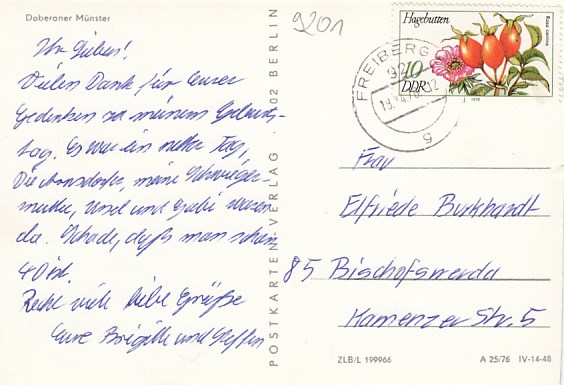 Doberaner Münster
9201
Ihr Lieben!
Vielen Dank für Eure
Gedenken zu meinem Geburts-
tag. Es war ein netter Tag,
Die donsdorfer, meine Schwieger-
mutter, Ursel und Gabi waren
da. Schade, daß man schon
40 ist.
Recht viele liebe Grüße
Eure Brigitte und Steffen
POSTKARTEN-VERLAG · 102 BERLIN
Hagebutten
Rosa canina
10
DDR
1978
FREIBERG
920
Frau
Elfriede Burkhardt
85 Bischofswerda
Kamenzer Str. 5
ZLB/L 199966
A 25/76 IV-14-48